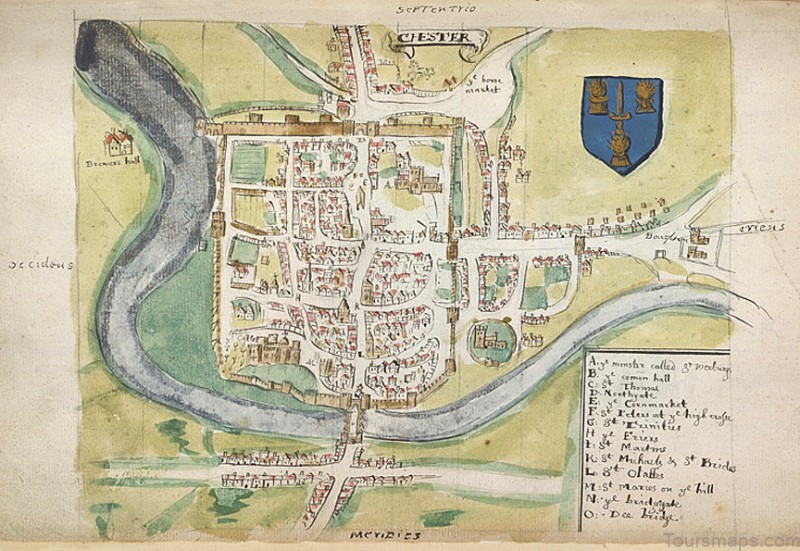 SEPTENTRIO
CHESTER
ye horse
market
Brewers hall
Occidens
Oriens
A: ye minster called St Werburg
B. ye comon hall
C: St Thomas
D: Northgate
E: ye Cornmarket
F: St Peters at ye high crosse
G: St Trinities
H ye Friers
I: St Martins
K: St Michaels & St Brides
L: St Olaffes
M: St Maries on ye hill
N: ye bridgate
O: Dee bridge
MERIDIES
Toursmaps.com